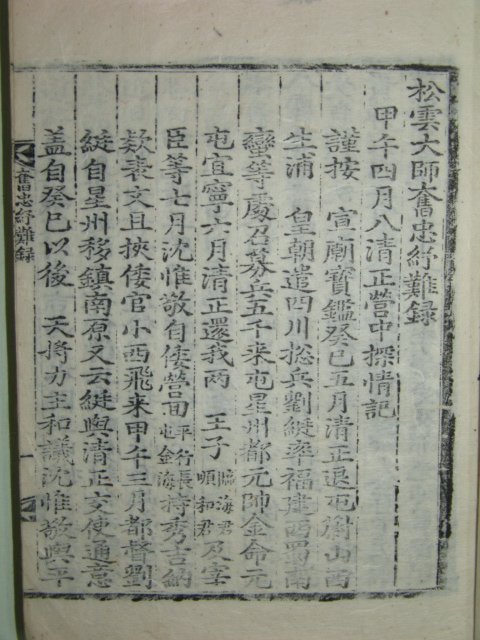 松雲大師奮忠紓難錄
甲午四月八清正營中探情記
謹按 宣廟寶鑑癸巳五月清正退屯蔚山西
生浦 皇朝遣四川総兵劉綎率福建西蜀南
蠻等處召募兵五千来屯星州都元帥金命元
屯宜寧六月清正還我兩 王子臨海君順和君及宰
臣等七月沈惟敬自倭營旬平行長屯金海持秀吉納
欵表文且挾倭官小西飛来甲午三月都督劉
綎自星州移鎮南原又云綎與清正交使通意
盖自癸巳以後 天將力主和議沈惟敬與平
奮忠紓難錄
一